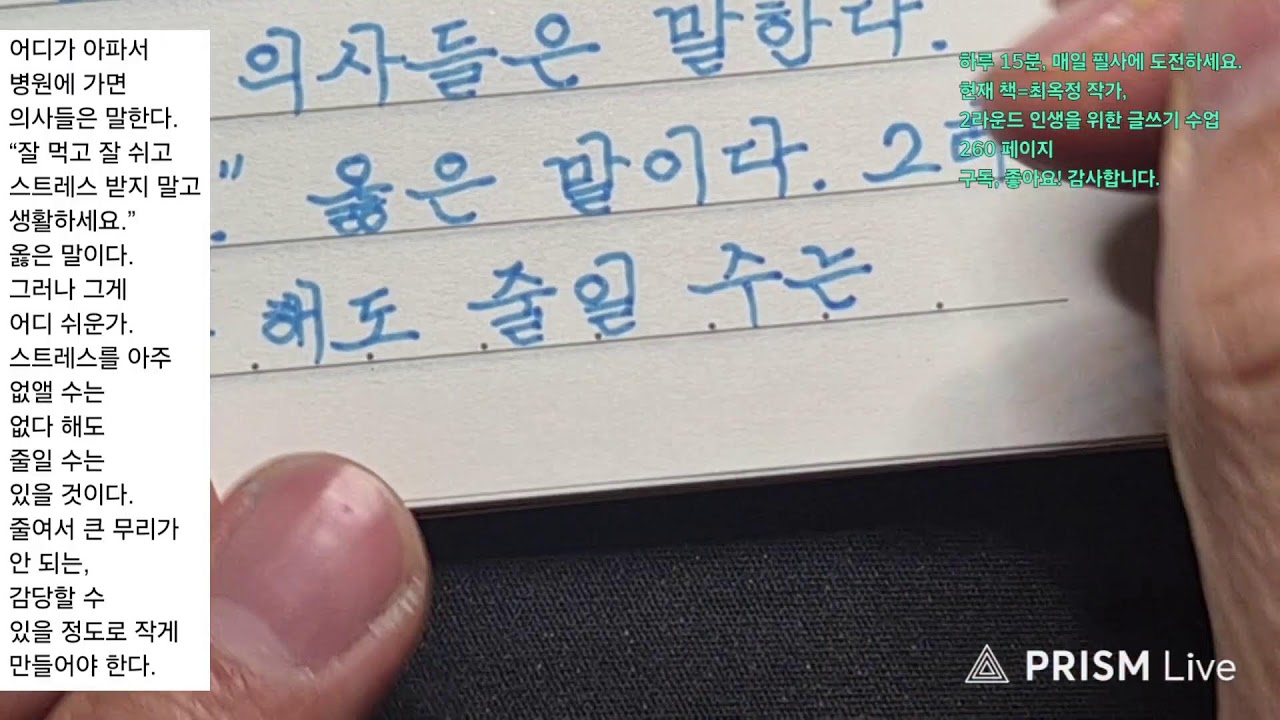 어디가 아파서
병원에 가면
의사들은 말한다.
“잘 먹고 잘 쉬고
스트레스 받지 말고
생활하세요.”
옳은 말이다.
그러나 그게
어디 쉬운가.
스트레스를 아주
없앨 수는
없다 해도
줄일 수는
있을 것이다.
줄여서 큰 무리가
안 되는,
감당할 수
있을 정도로 작게
만들어야 한다.
의사들은 말한다.
.” 옳은 말이다. 그러
해도 줄일 수는
하루 15분, 매일 필사에 도전하세요.
현재 책=최옥정 작가,
2라운드 인생을 위한 글쓰기 수업
260 페이지
구독, 좋아요! 감사합니다.
PRISM Live